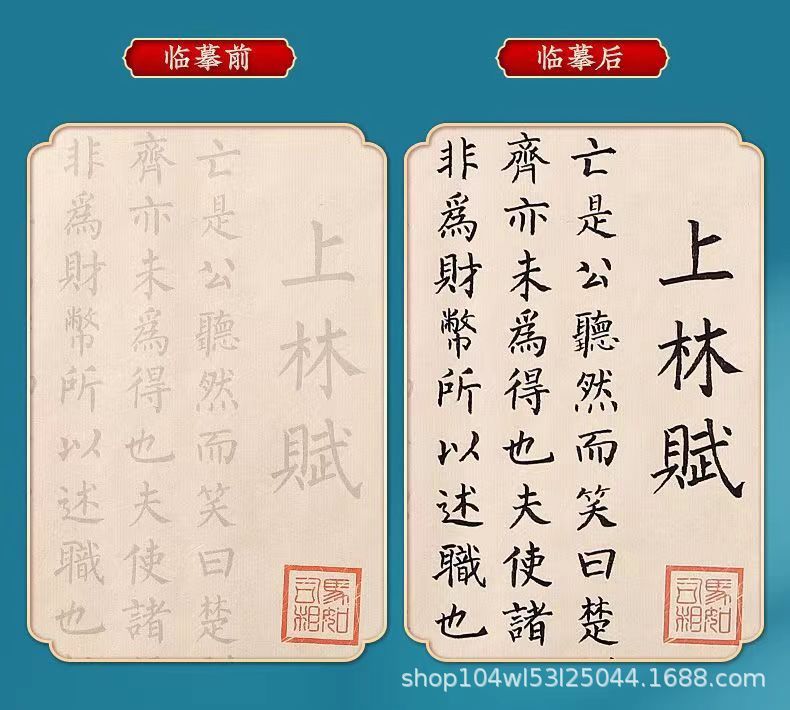 临摹前
上林赋
亡是公聽然而笑曰楚
齊亦未為得也夫使諸
非為財幣所以述職也
司馬相如
临摹后
上林賦
亡是公聽然而笑曰楚
齊亦未爲得也夫使諸
非爲財幣所以述職也
司馬相如
shop104wl53l25044.1688.com